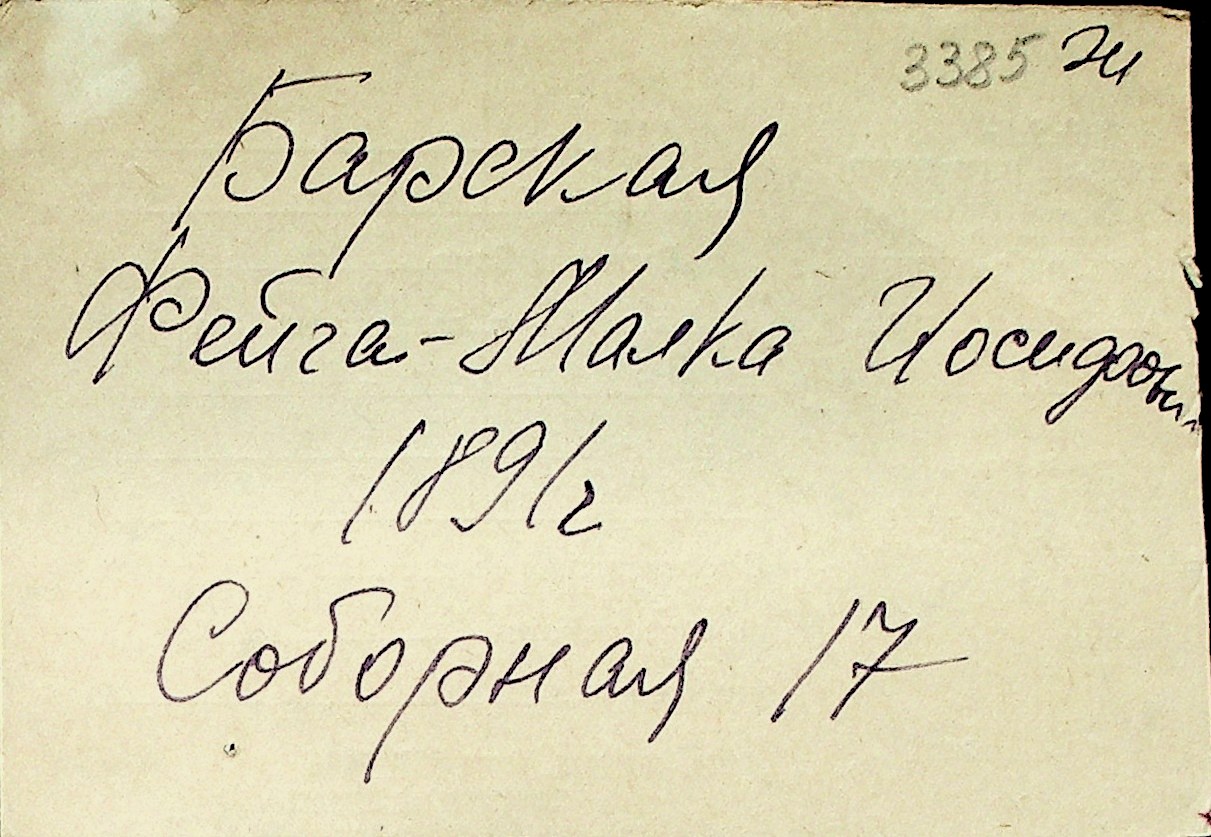 3385 ж
Барская
Фейга-Малка
1891г
Соборная 17